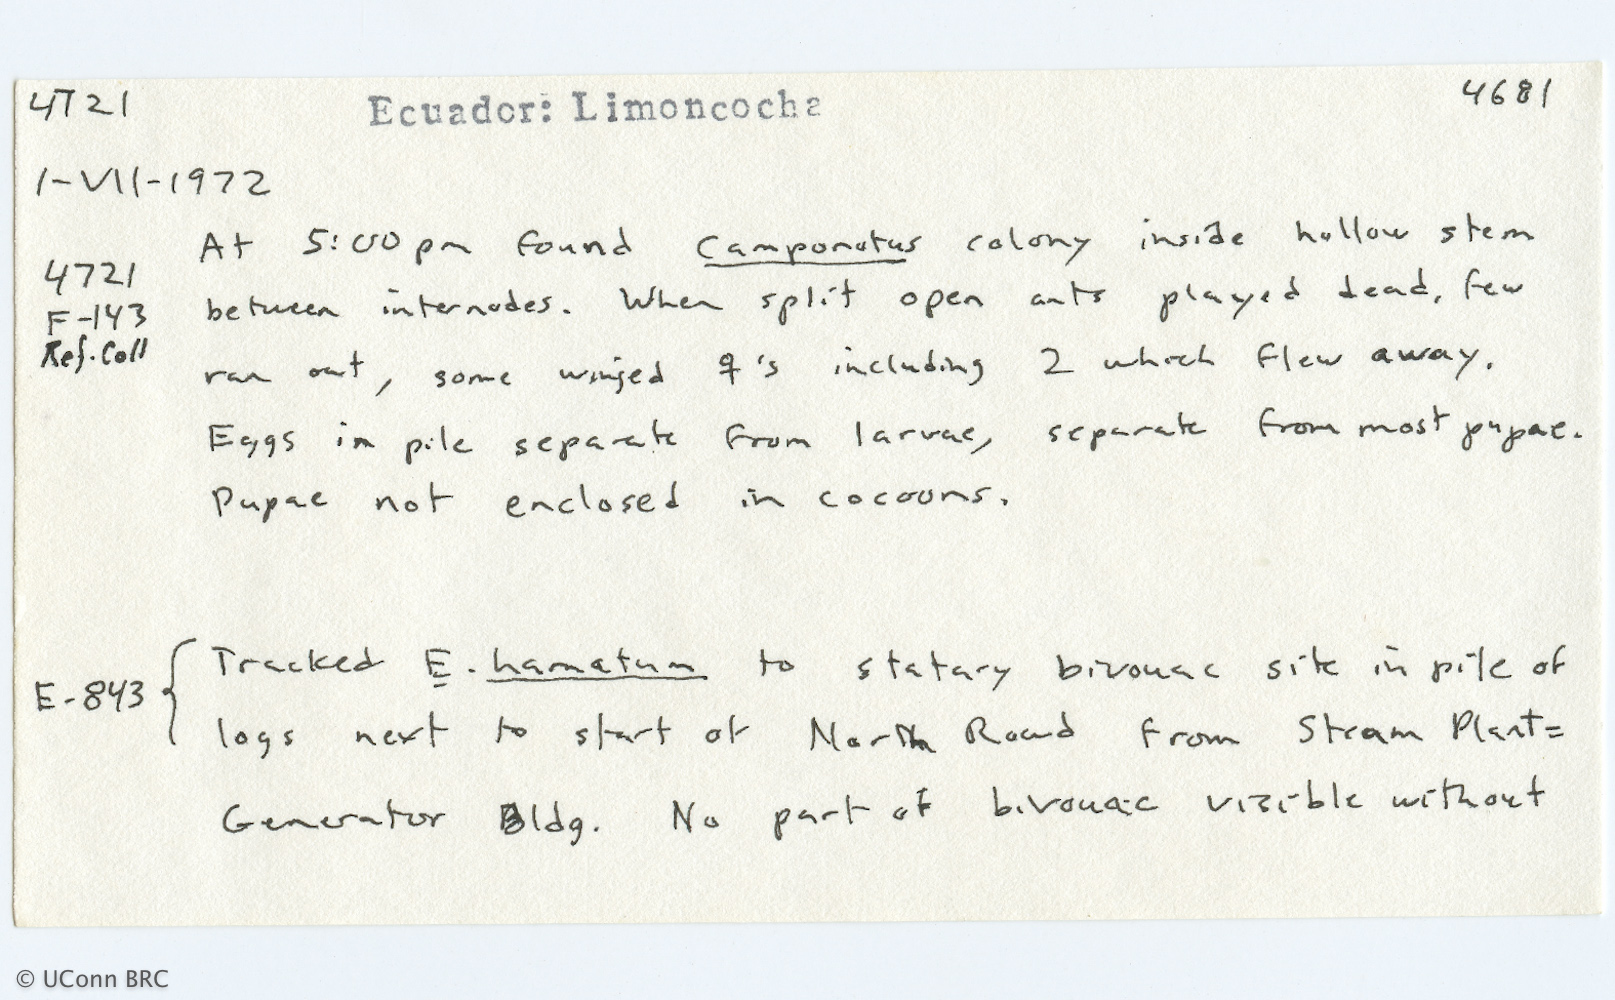 4721 Ecuador: Limoncocha 4681
1-VII-1972
At 5:00 pm found Camponotus colony inside hollow stem
4721
between internodes. When split open ants played dead, few
F-143
Ref. Coll
ran out, some winged ♀'s including 2 which flew away.
Eggs in pile separate from larvae, separate from most pupae.
Pupae not enclosed in cocoons.
Tracked E. hamatum to statary bivouac site in pile of
E-843
logs next to start of North Road from Steam Plant=
Generator Bldg. No part of bivouac visible without
© UConn BRC